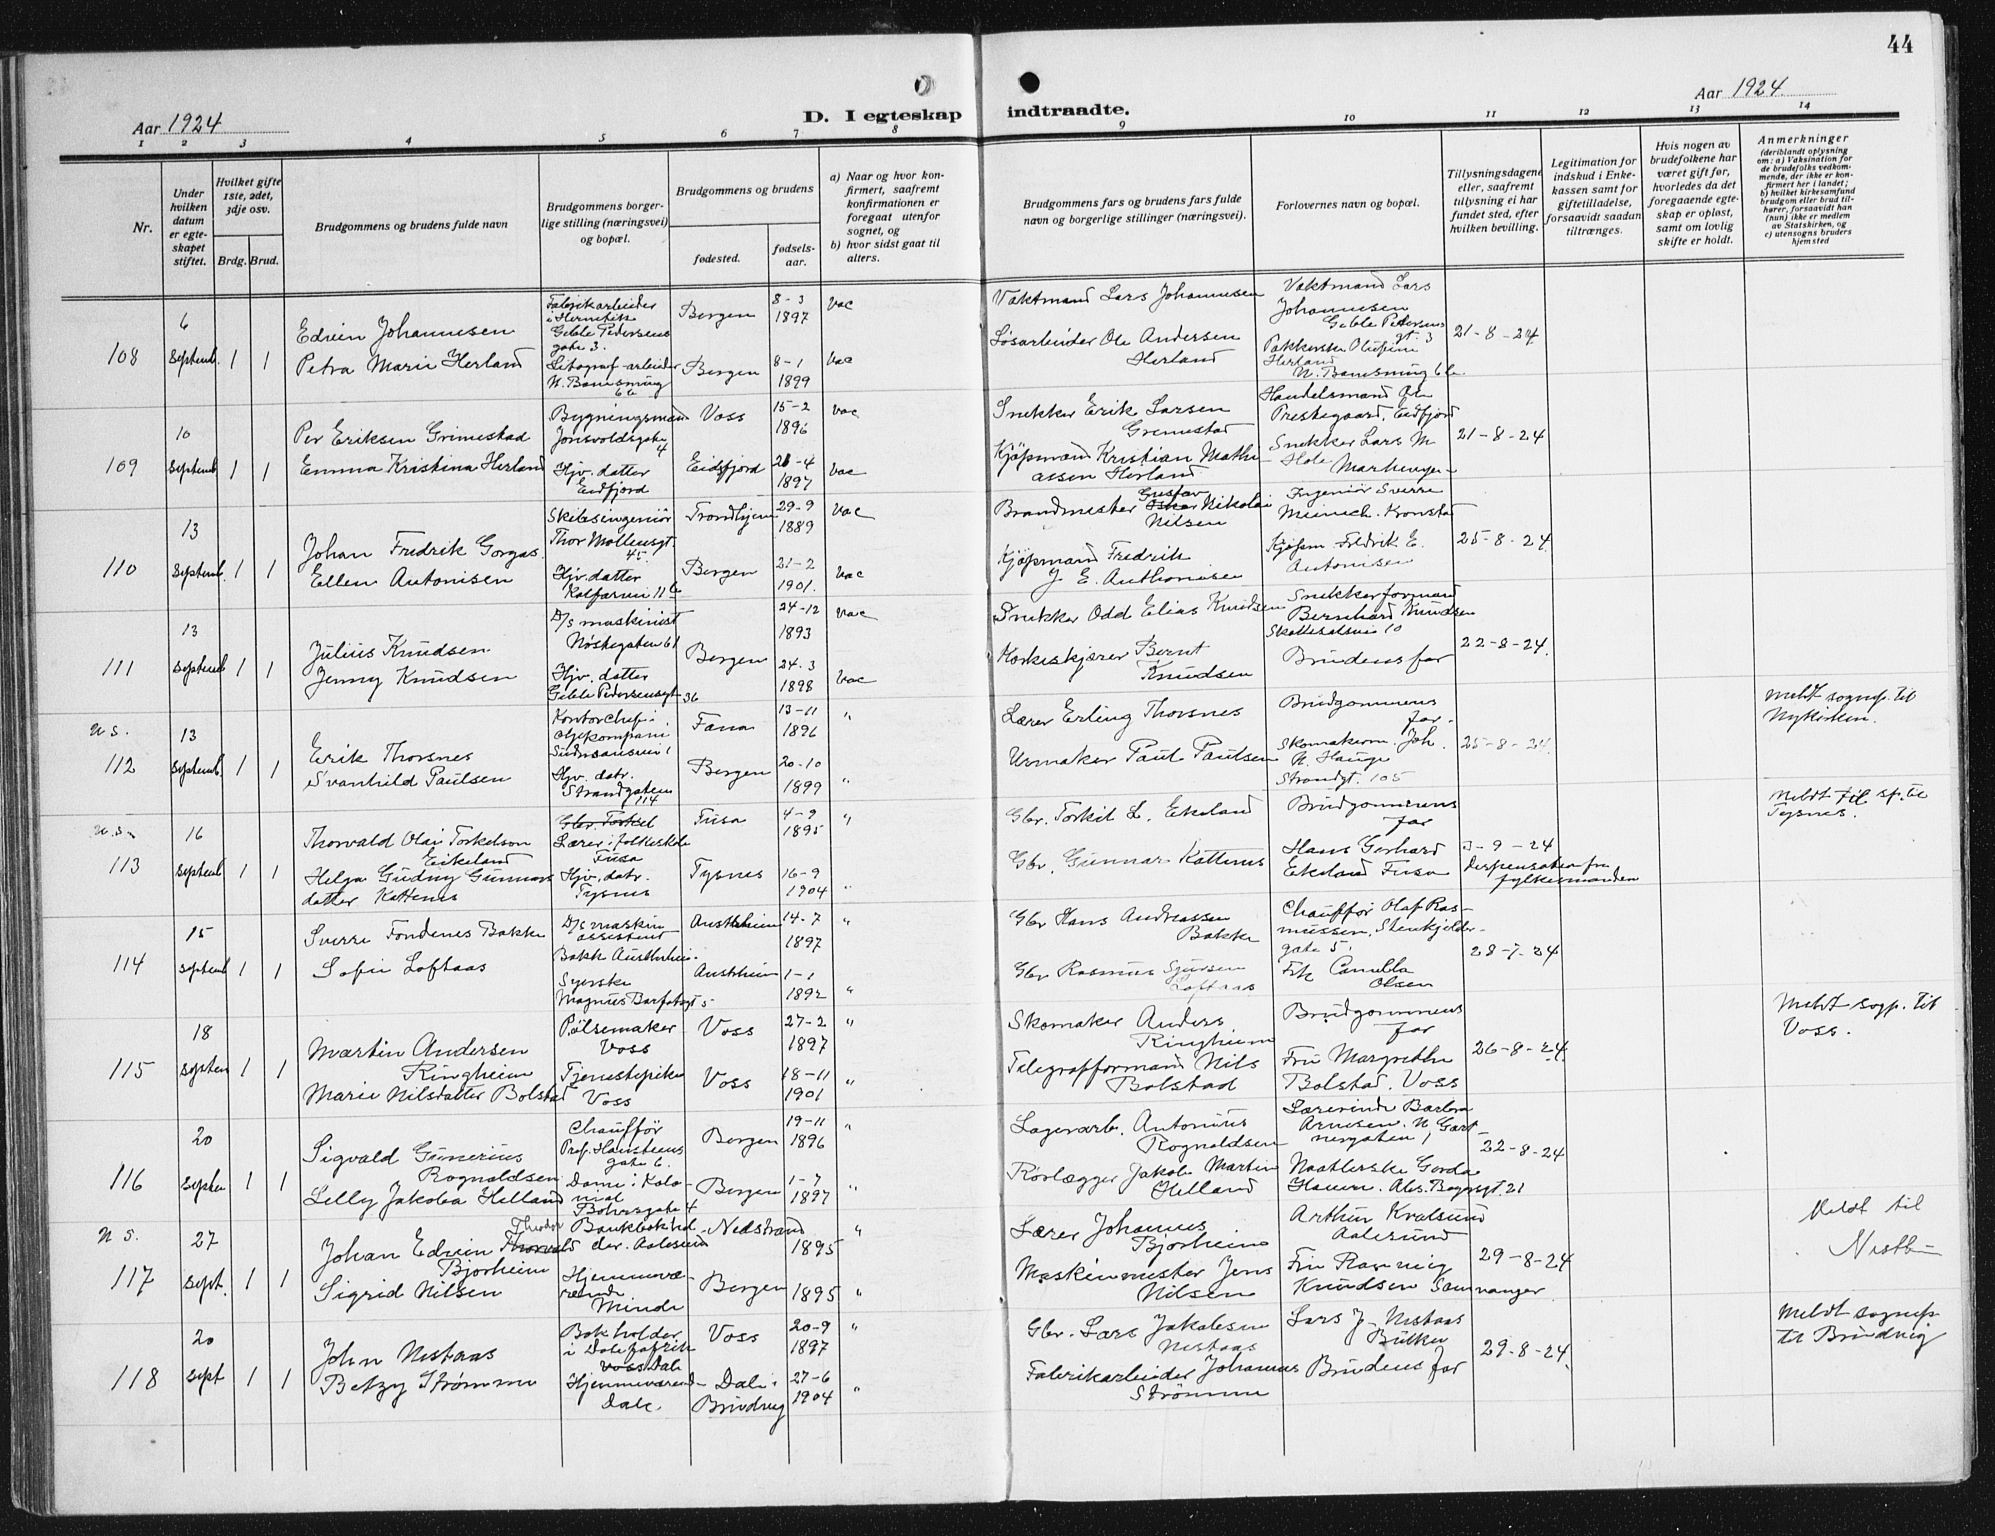 44
Aar 1924
D. I egteskap indtraadte.
Aar 1924
1 2 3 4 5 6 7 8 9 10 11 12 13 14
Nr.
Under hvilken datum er egteskapet stiftet.
Hvilket gifte 1ste, 2det, 3dje osv.
Brdg. Brud.
Brudgommens og brudens fulde navn
Brudgommens borgerlige stilling (næringsvei) og bopæl.
Brudgommens og brudens
fødested.
fødselsaar.
a) Naar og hvor konfirmert, saafremt konfirmationen er foregaat utenfor sognet, og
b) hvor sidst gaat til alters.
Brudgommens fars og brudens fars fulde navn og borgerlige stillinger (næringsvei).
Forlovernes navn og bopæl.
Tillysningsdagene eller, saafremt tillysning ei har fundet sted, efter hvilken bevilling.
Legitimation for indskud i Enkekassen samt for giftetilladelse, forsaavidt saadan tiltrænges.
Hvis nogen av brudefolkene har været gift før, hvorledes da det foregaaende egteskap er opløst, samt om lovlig skifte er holdt.
Anmerkninger
(deriblandt oplysning om: a) Vaksination for de brudefolks vedkommende, der ikke er konfirmert her i landet; b) hvilket kirkesamfund brudgom eller brud tilhører, forsaavidt han (hun) ikke er medlem av Statskirken, og c) utensogns bruders hjemsted
108 6 Septemb. 1 1
Edvin Johannesen
Petra Marie Herland
Fabrikarbeider
i Hermetik
Geble Pedersens
gate 3.
Litograf-arbeider
Bergen 8-3 1897 vac
Bergen 8-1 1899 vac
Vaktmand Lars Johannesen
Løsarbeider Ole Andersen
Herland
Vaktmand Lars
Johannesen
Geble Pedersens
gt. 3
Herland
21-8-24
109 10 Septemb 1 1
Per Eriksen Grimestad
Emma Kristina Herland
Bygningsmand
Jonsvoldsgate
4
Hjv. datter
Eidfjord
Voss 15-2 1896 vac
Eidfjord 21-4 1897 vac
Snekker Erik Larsen
Gremestad
Kjøpmand Kristian Mathiassen Herland
Handelsmand Ole
Prestegaard, Eidfjord
Snekker Lars M.
21-8-24
110 13 Septemb. 1 1
Johan Fredrik Gorgas.
Ellen Antonisen
Skibsingeniør
Thor Møllensgt.
45.
Hjv. datter
Kalfarvei 11 b
Trondhjem 29-9 1889 vac
Bergen 21-2 1901. vac
Brandmester Gustav Nikolai
Nilsen
Kjøpmand Fredrik
J. E. Anthonisen
Ingeniør Sverre
Meinich. Kronstad
Kjøpm. Fredrik E.
Antonisen
25-8-24.
111 13 Septemb 1 1
Julius Knudsen
Jenny Knudsen
D/s maskinist
Nøstegaten 61
Hjv. datter
Geble Pedersensgt 36
Bergen
24-12 1893 vac
24.3 1898 vac
Snekker Odd Elias Knudsen
Korkeskjærer Bernt
Knudsen
Snekkerformand
Bernhard Knudsen
Brudens far
22-8-24.
u s.
112 13 Septemb. 1 1
Erik Thorsnes
Svanhild Paulsen
Kontorchef i
oljekompani
Hjv. datr.
Strandgaten
114
Fana 13-11 1896 "
Bergen 20-10 1899 "
Lærer Erling Thorsnes
Urmaker Paul Paulsen
Brudgommens
far.
Skomakerm. Joh.
N. Hauge
Strandgt. 105
25-8-24.
Meldt sognep. til
Nykirken.
u. s.
113 16 Septemb 1 1
Thorvald Olai Torkelson
Eikeland
Helga Gudny Gunnarsdatter Kattenes
Gbr. Torkel
Lærer i folkeskole
Fusa
Hjv. datr.
Tysnes
Fusa 4-9 1895 "
Tysnes 16-9 1904 "
Gbr. Torkil L. Eikeland
Gbr. Gunnar Kattenes
Brudgommens
far
Hans Gerhard
Eikeland Fusa
3-9-24
Dispensation fra
fylkesmanden
Meldt til sp. til
Tysnes.
114 15 Septemb 1 1
Sverre Fondenes Bakke
Sofie Loftaas
D/s maskin
assistent
Bakk Austrheim.
Syerske
Magnus Barfotsgt 5
Austrheim 14-7 1897 "
Austrheim 1-1 1892 "
Gbr Hans Andreassen
Bakke
Gbr Rasmus Sjursen
Loftaas
Chauffør Olaf Rasmussen, Stenkjeldergate 5.
Frk Camilla
Olsen
28-7-24
115 18 Septem 1 1
Martin Andersen
Ringheim
Marie Nilsdatter Bolstad
Pølsemaker
Voss
Tjenestepike
Voss
Voss 27-2 1897 "
Voss 18-11 1901 "
Skomaker Anders
Ringheim
Telegrafformand Nils
Bolstad
Brudgommens
far
Fru Margrethe
Bolstad. Voss
26-8-24
Meldt sogp. til
Voss.
116 20 Septem 1 1
Sigvald Gunerius
Rognaldsen
Lelly Jakoba Helland
Chauffør
Prof. Hansteens
gate 6.
Dame i Kolonial
Bohrsgate 4
Bergen 19-11 1896 "
Bergen 1-7 1897 "
Lagerarb. Antonius
Rognaldsen
Rørlægger Jakob Martin
Helland
Lærerinde Barbra
Arnesen. N. Gartnergaten 1
Naatlerske Gorda
22-8-24
n s.
117 27 Sept. 1 1
Johan Edvin Theodor Thorvald
Bjorheim
Sigrid Nilsen
Bankbokholder. Aalesund
Hjemmeværende
Minde
Nedstrand 1895 "
Bergen 1895 "
Lærer Johannes
Bjorheim
Maskinmester Jens
Nilsen
Arthur Kvalsund
Aalesund
Fru Ranveig
Knudsen Samnanger
29-8-24
Meldt til
118 20 Sept 1 1
John Nestaas
Betzy Strømme
Bokholder
i Dale fabrik
Voss Dale
Hjemmeværend
Dale.
Voss 20-9 1897 "
Dale i
Bruvik 27-6 1904 "
Gbr. Lars Jakobsen
Nestaas
Fabrikarbeider Johannes
Strømme
Lars J. Nestaas
Bulken
Brudens far
29-8-24.
Meldt sognep.
til Bruvik